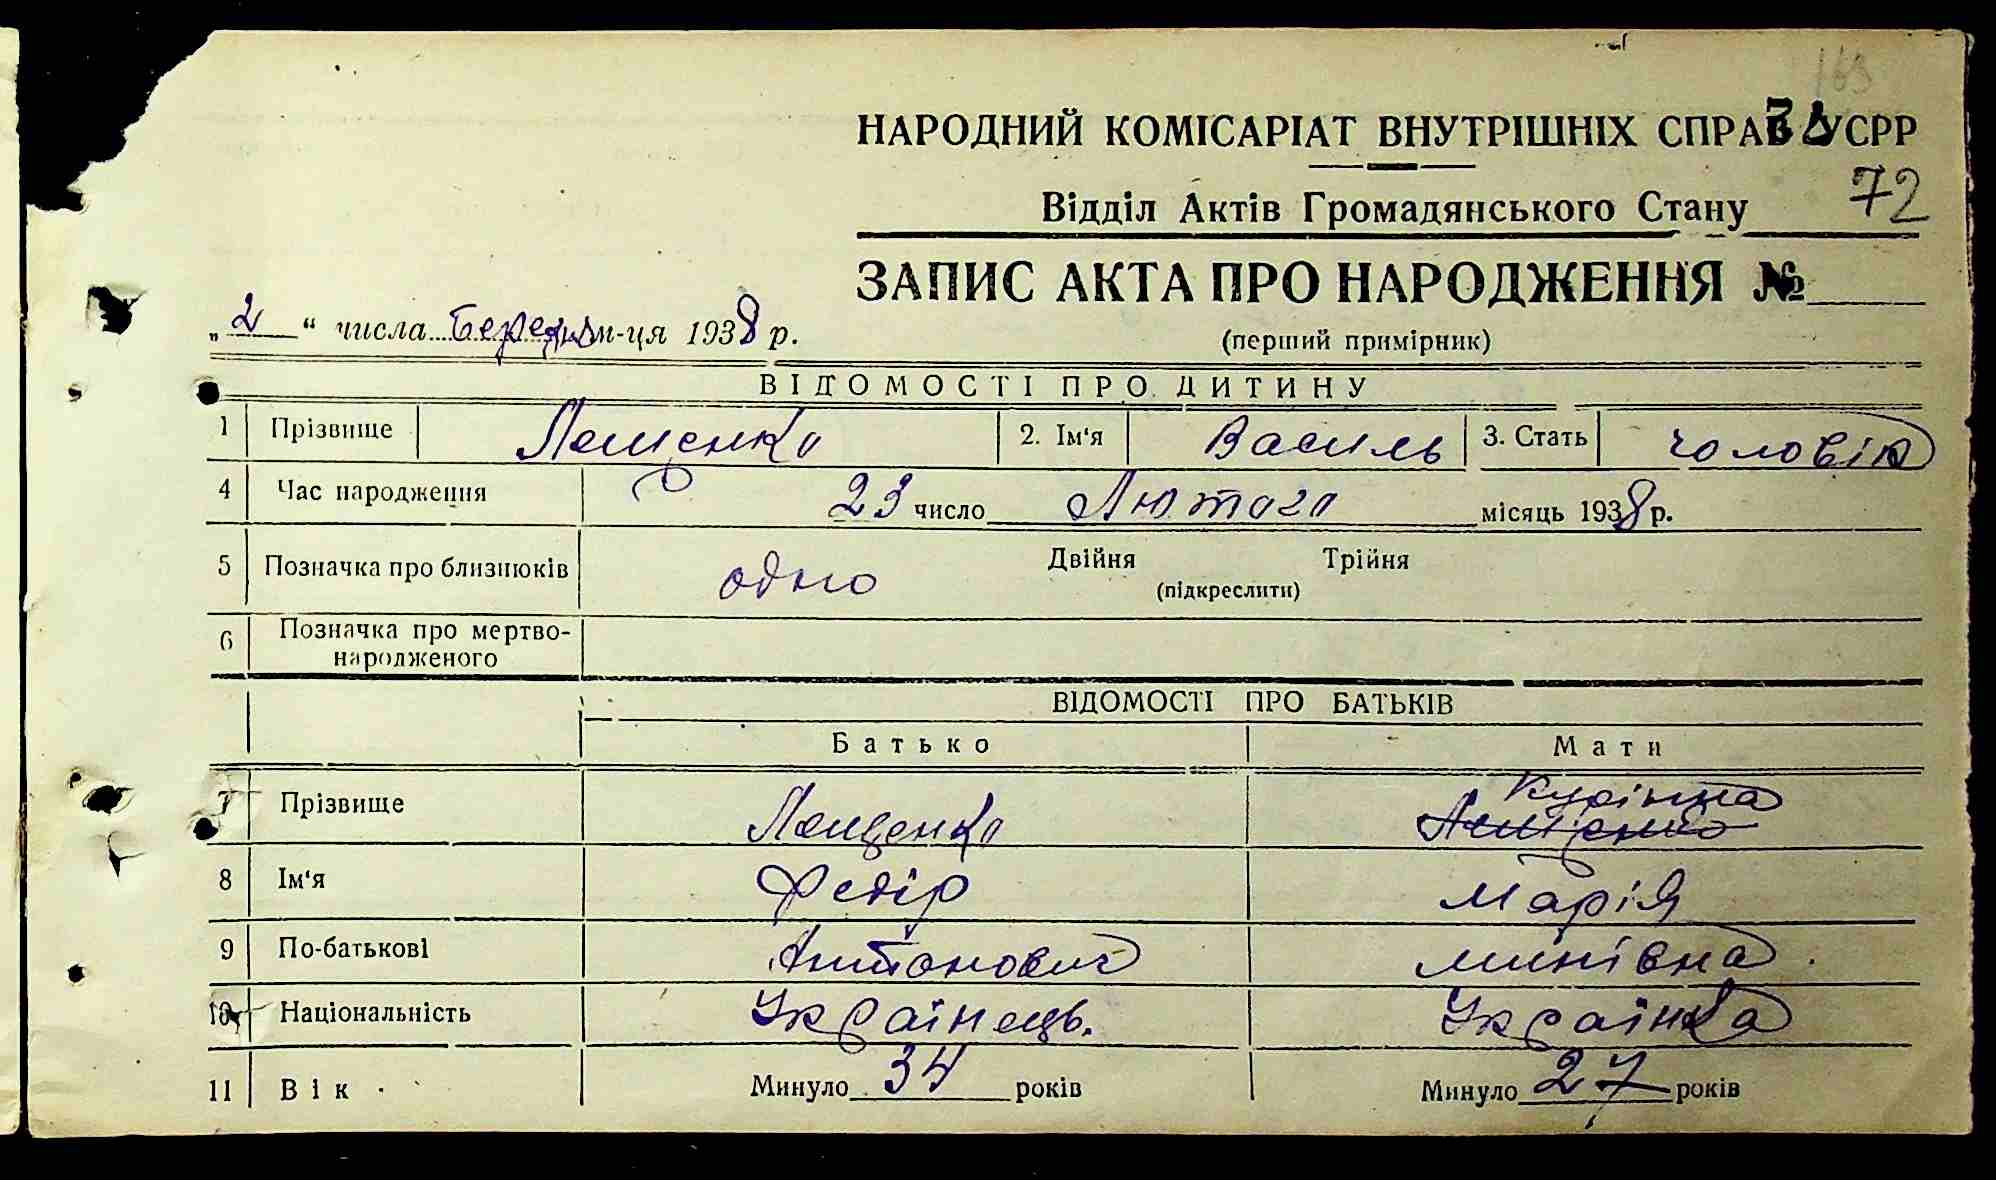 163
НАРОДНИЙ КОМІСАРІАТ ВНУТРІШНІХ СПРАВ УСРР
Відділ Актів Громадянського Стану 72
ЗАПИС АКТА ПРО НАРОДЖЕННЯ №
„2“ числа березня м-ця 1938 р.
(перший примірник)
ВІДОМОСТІ ПРО ДИТИНУ
1 Прізвище Лещенко 2. Ім‘я Василь 3. Стать чоловік
4 Час народження 23 число Лютого місяць 1938 р.
5 Позначка про близнюків одно Двійня Трійня
(підкреслити)
6 Позначка про мертво-
народженого
ВІДОМОСТІ ПРО БАТЬКІВ
Батько Мати
7 Прізвище Лещенко Курінна Лещенко
8 Ім‘я Федір Марія
9 По-батькові Антонович Минівна
10 Національність Українець. Українка
11 Вік Минуло 34 років Минуло 27 років